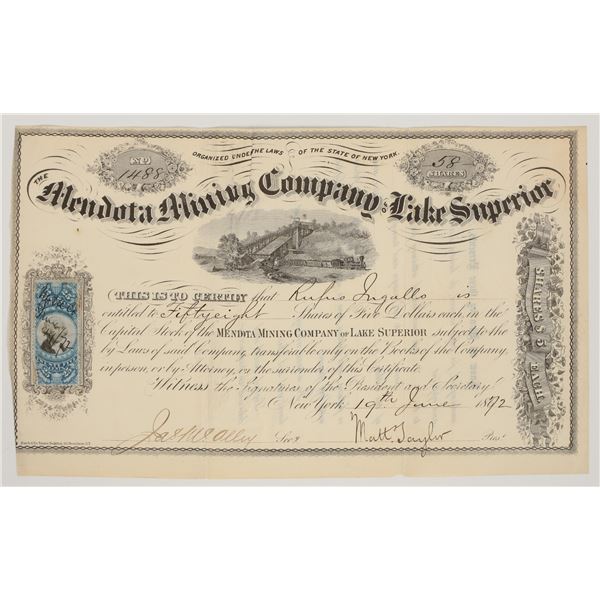 ORGANIZED UNDER THE LAWS OF THE STATE OF NEW YORK.
No
1488
58
SHARES
THE Mendota Mining Company of Lake Superior
THIS IS TO CERTIFY that Rufus Ingalls is
entitled to Fiftyeight Shares of Five Dollars each, in the
Capital Stock of the MENDOTA MINING COMPANY OF LAKE SUPERIOR subject to the
by Laws of said Company, transferable only on the Books of the Company,
in person, or by Attorney, on the surrender of this Certificate.
Witness the Signatures of the President and Secretary
New York 19th June 1872
Secy
Matt. Taylor Prest
SHARES $5 EACH